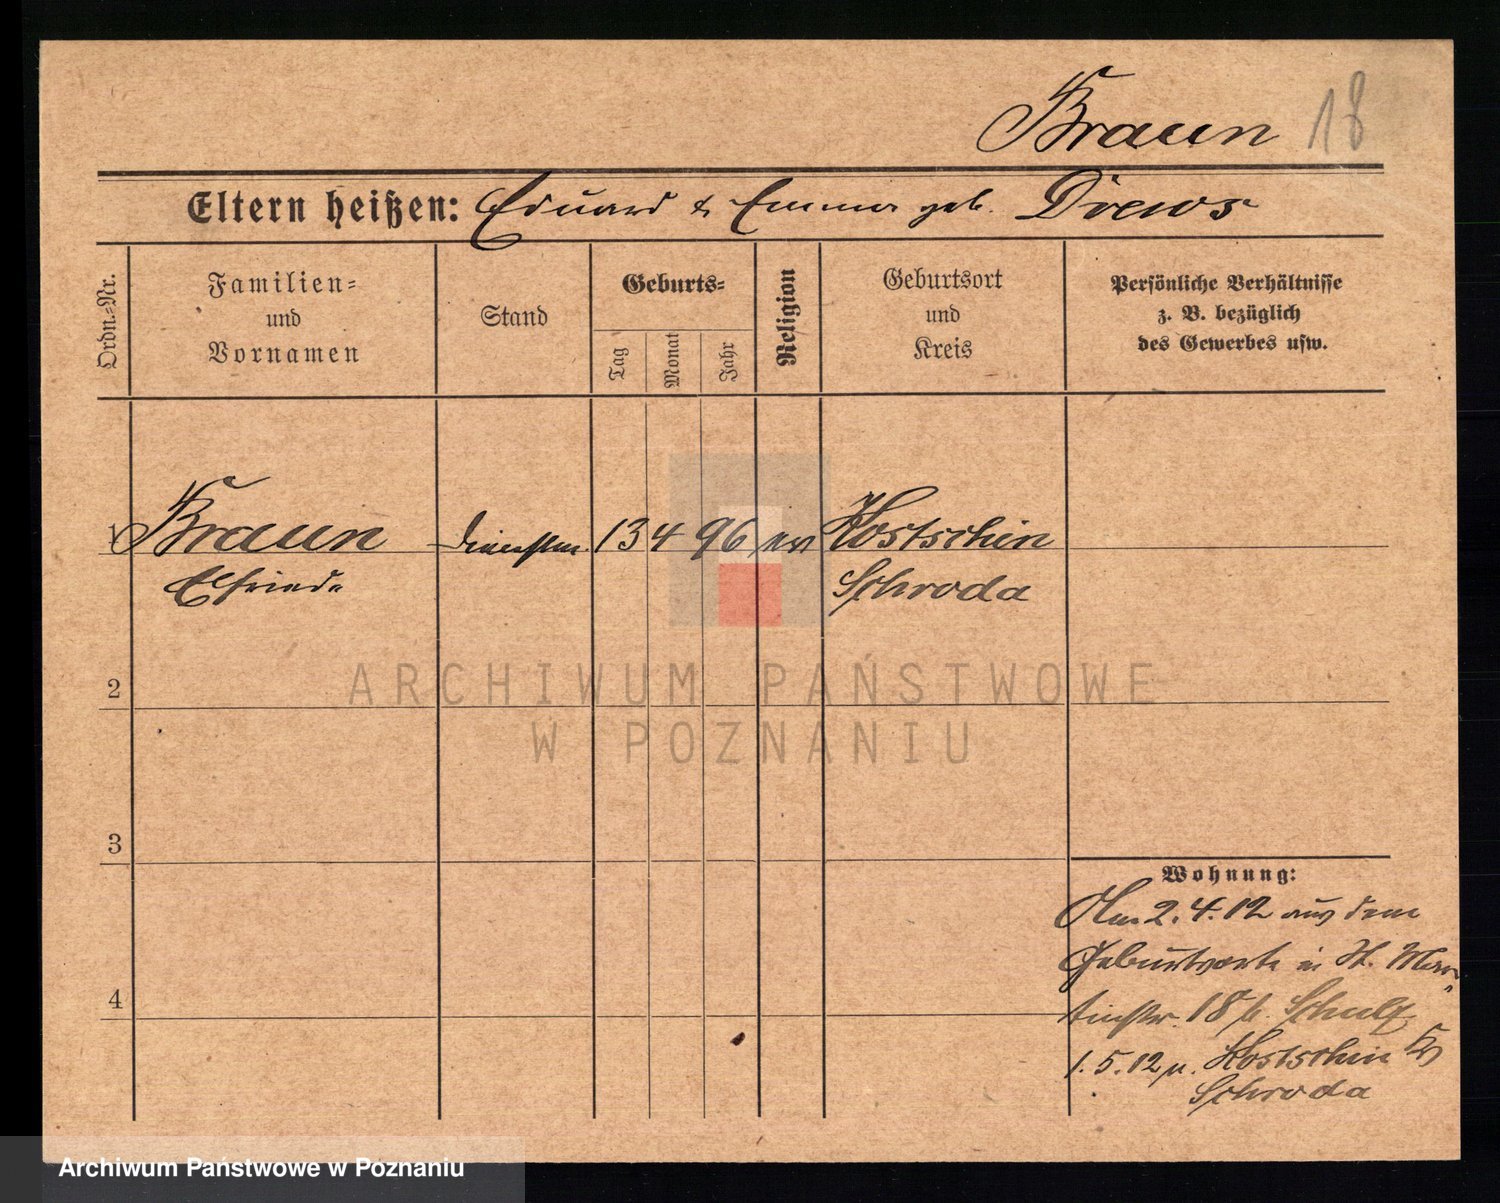 Braun 18
Eltern heißen: Eduard & Emma geb. Drews
Ordn.-Nr.
Familien-
und
Vornamen
Stand
Geburts-
Tag
Monat
Jahr
Religion
Geburtsort
und
Kreis
Persönliche Verhältnisse
z. B. bezüglich
des Gewerbes usw.
1 Braun Dienstm. 13 4 96 ev Kostschin
Elfriede Schroda
2
3
4
Wohnung:
Am 2.4.12 aus dem
Geburtsorte in St. Mar-
tinstr. 18 b. Schulz
1.5.12 n. Kostschin Kr
Schroda
ARCHIWUM PAŃSTWOWE
W POZNANIU
Archiwum Państwowe w Poznaniu